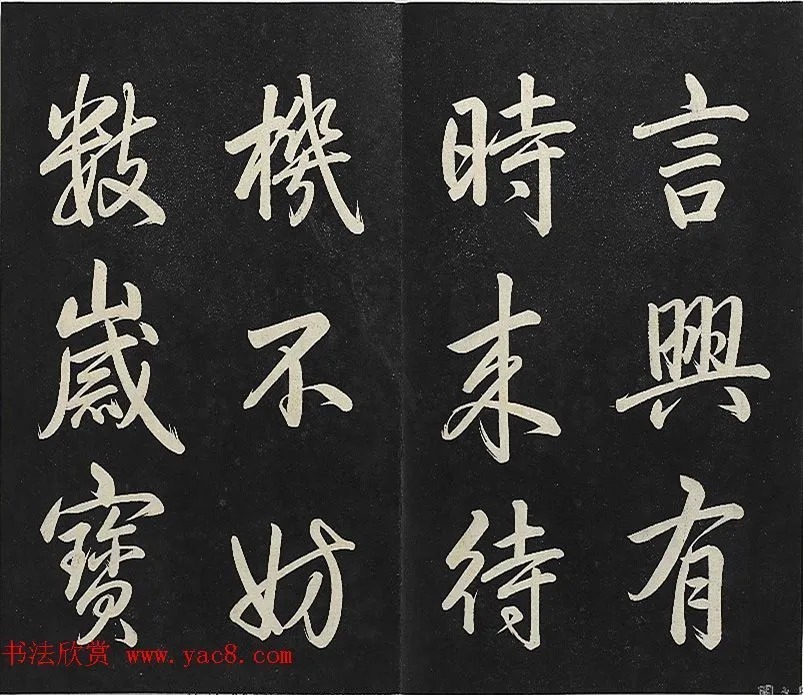 言興有
時来待
機不妨
數歲寶
书法欣赏 www.yac8.com